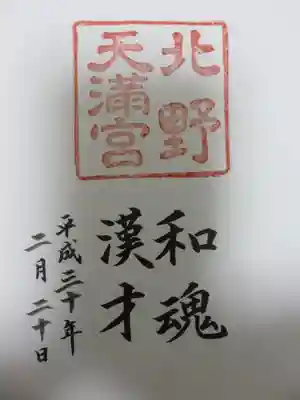 北野
天満宮
和魂
漢才
平成三十年
二月二十日